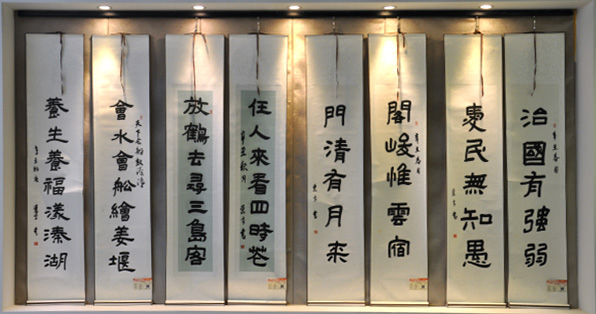 治國有強弱
愛民無知愚
閣峻惟雲宿
門清有月来
任人來看四時花
放鶴去尋三島客
會水會船繪姜堰
養生養福漾溱湖